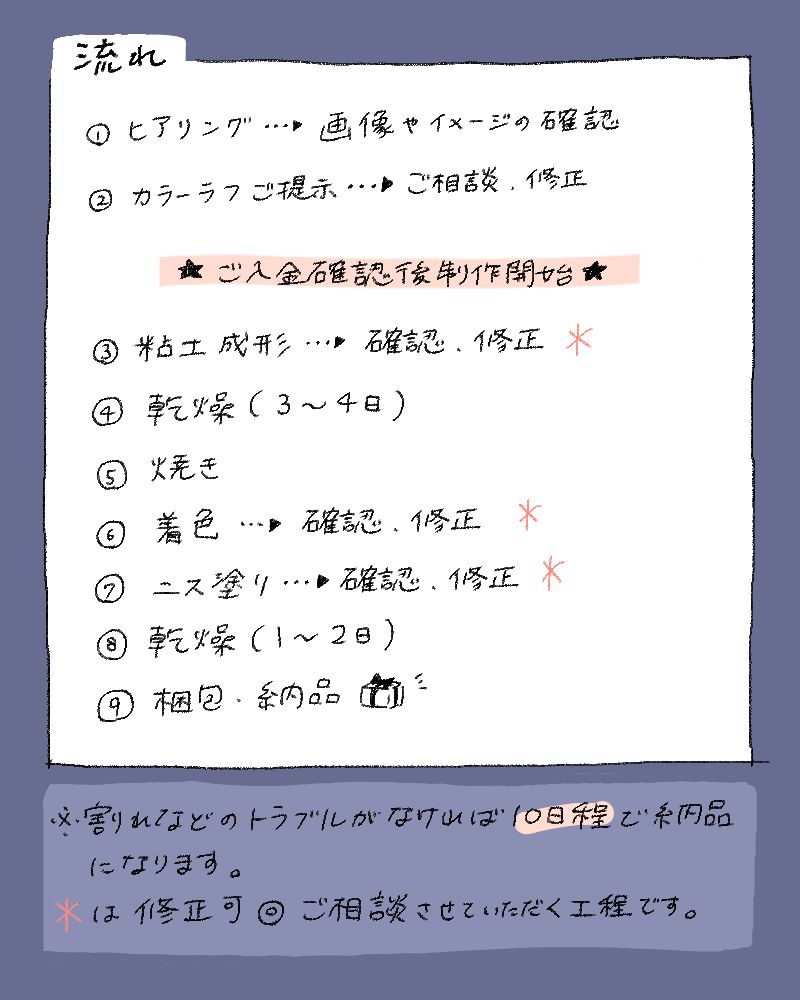 流れ
① ヒアリング…▶ 画像やイメージの確認
② カラーラフご提示…▶ ご相談、修正
★ ご入金確認後制作開始 ★
③ 粘土成形…▶ 確認、修正 *
④ 乾燥(3〜4日)
⑤ 焼き
⑥ 着色…▶ 確認、修正 *
⑦ ニス塗り…▶ 確認、修正 *
⑧ 乾燥(1〜2日)
⑨ 梱包・納品
※割れなどのトラブルがなければ10日程で納品
になります。
*は修正可◎ご相談させていただく工程です。